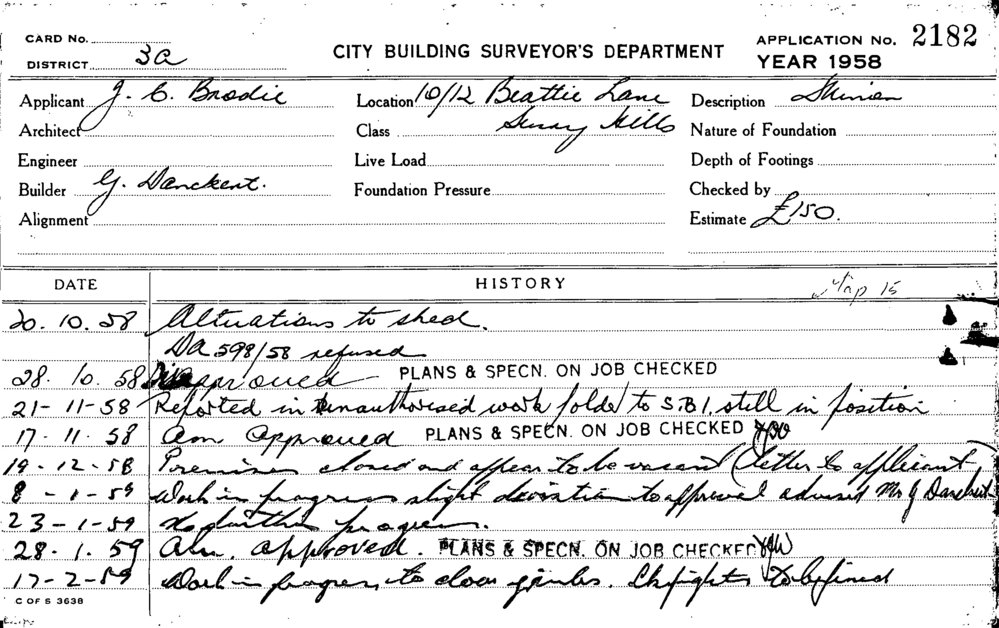 CARD No.
DISTRICT 3a
CITY BUILDING SURVEYOR'S DEPARTMENT
APPLICATION No. 2182
YEAR 1958
Applicant J. C. Brodie
Location 10/12 Beattie Lane
Description
Architect
Class Surry Hills
Nature of Foundation
Engineer
Live Load
Depth of Footings
Builder G. Danckert.
Foundation Pressure
Checked by
Alignment
Estimate £150.
DATE HISTORY Map 15
20. 10. 58 Alterations to shed.
DA 598/58 refused
28. 10. 58 Disapproved PLANS & SPECN. ON JOB CHECKED
21-11-58 Reported in unauthorised work folder to S.B.I. still in position
17. 11. 58 Am Approved PLANS & SPECN. ON JOB CHECKED
19-12-58 Premises closed and appear to be vacant (letter to applicant)
8-1-59 Work in progress slight deviation to approval advised Mr G Danckert
23-1-59 No further progress.
28. 1. 59 Am. approved. PLANS & SPECN. ON JOB CHECKED
17-2-59 Work in progress to door to be fixed
C OF S 3638